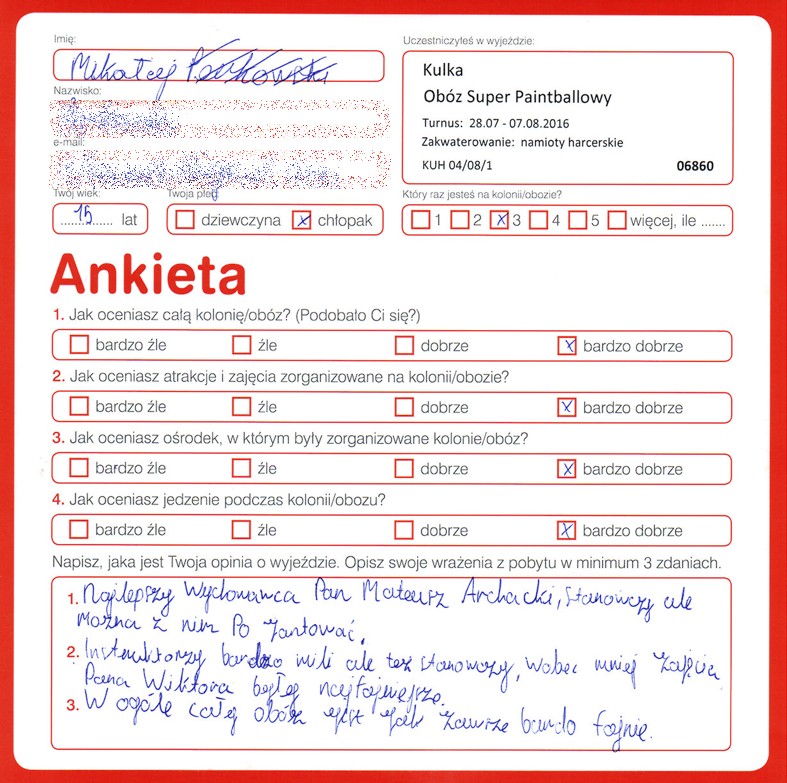 Imię:
Uczestniczyłeś w wyjeździe:
Mikołaj
Kulka
Nazwisko:
Obóz Super Paintballowy
Turnus: 28.07 - 07.08.2016
e-mail:
Zakwaterowanie: namioty harcerskie
KUH 04/08/1 06860
Twój wiek:
Twoja płeć
Który raz jesteś na kolonii/obozie?
15 lat
dziewczyna x chłopak
1 2 x 3 4 5 więcej, ile .......
Ankieta
1. Jak oceniasz całą kolonię/obóz? (Podobało Ci się?)
bardzo źle źle dobrze x bardzo dobrze
2. Jak oceniasz atrakcje i zajęcia zorganizowane na kolonii/obozie?
bardzo źle źle dobrze x bardzo dobrze
3. Jak oceniasz ośrodek, w którym były zorganizowane kolonie/obóz?
bardzo źle źle dobrze x bardzo dobrze
4. Jak oceniasz jedzenie podczas kolonii/obozu?
bardzo źle źle dobrze x bardzo dobrze
Napisz, jaka jest Twoja opinia o wyjeździe. Opisz swoje wrażenia z pobytu w minimum 3 zdaniach.
1. Najlepszy Wychowawca Pan Mateusz Archacki, stanowczy ale
można z nim Po żartować.
2. Instruktorzy bardzo mili ale też stanowczy, wobec mniej Zajęcia
Pana Wiktora były najfajniejsze.
3. W ogóle cały obóz jest jak zawsze bardo fajnie.